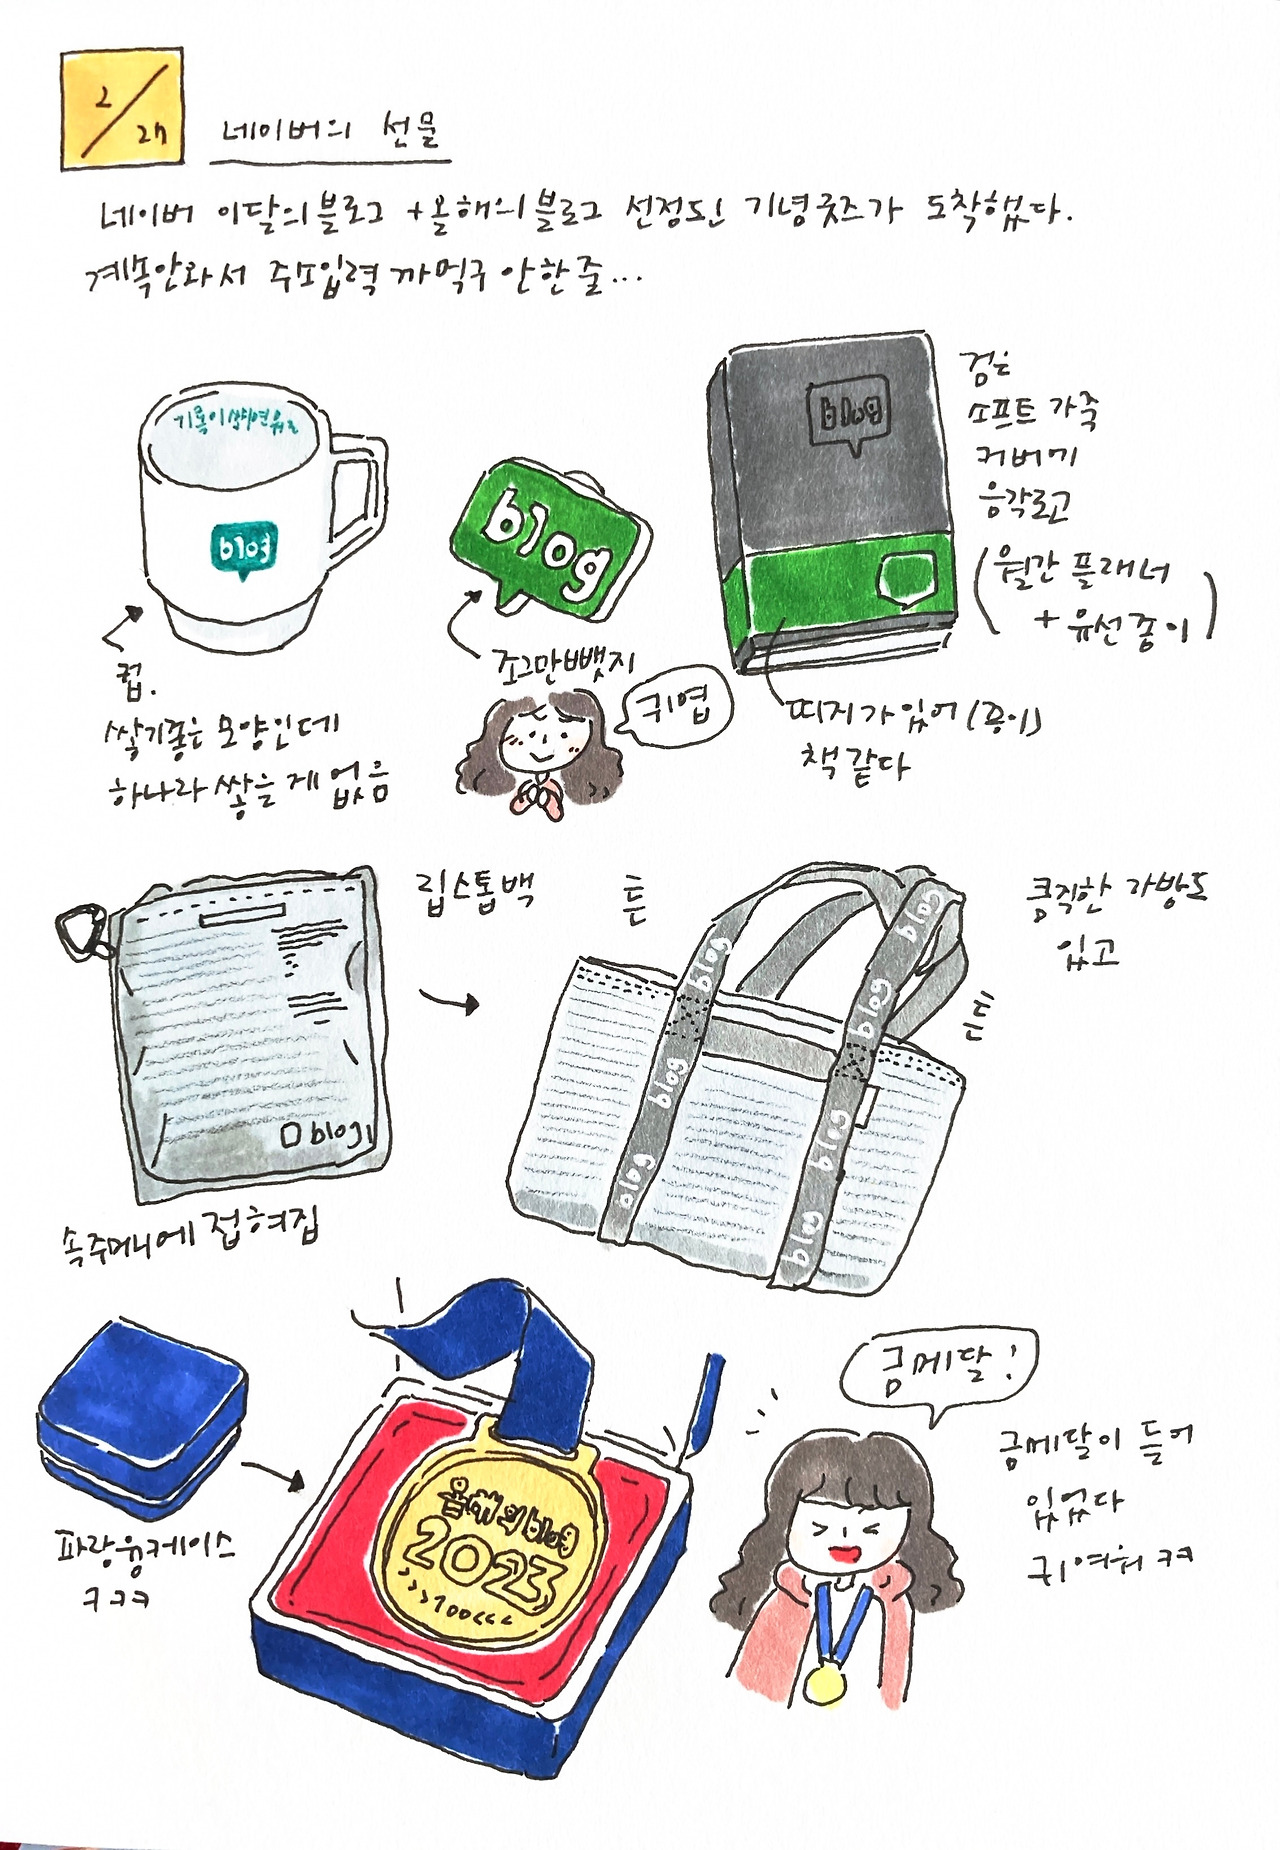 2/27
네이버의 선물
네이버 이달의블로그 +올해의블로그 선정되신 기념굿즈가 도착했다.
계속안와서 주소입력 까먹구 안한줄...
blog
컵.
쌓기좋은 모양인데
하나라 쌓을 게 없음
blog
조그만뺏지
귀엽
blog
검은
소프트 가죽
커버에
음각로고
(월간 플래너
+ 유선종이)
띠지가 있어 (종이)
책 같다
blog
속주머니에 접혀짐
립스톱백
튼
튼
blog
blog
blog
blog
blog
blog
blog
blog
큼직한 가방도
있고
파랑융케이스
ㅋㅋㅋ
올해의 blog
2023
>>>100<<<
금메달!
금메달이 들어
있었다
귀여워 ㅋㅋ